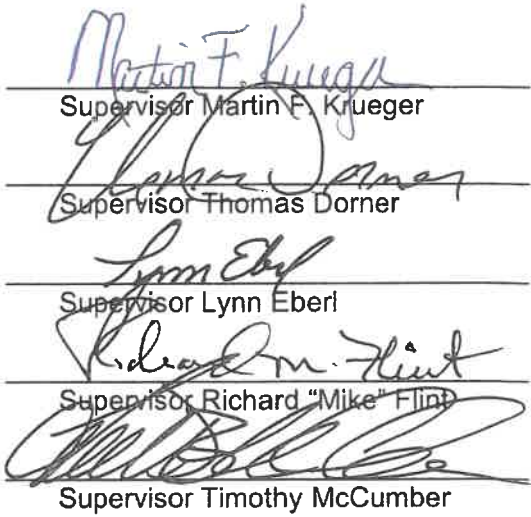 Martin F. Krueger
Supervisor Martin F. Krueger
Thomas Dorner
Supervisor Thomas Dorner
Lynn Eberl
Supervisor Lynn Eberl
Richard M. Flint
Supervisor Richard "Mike" Flint
Supervisor Timothy McCumber